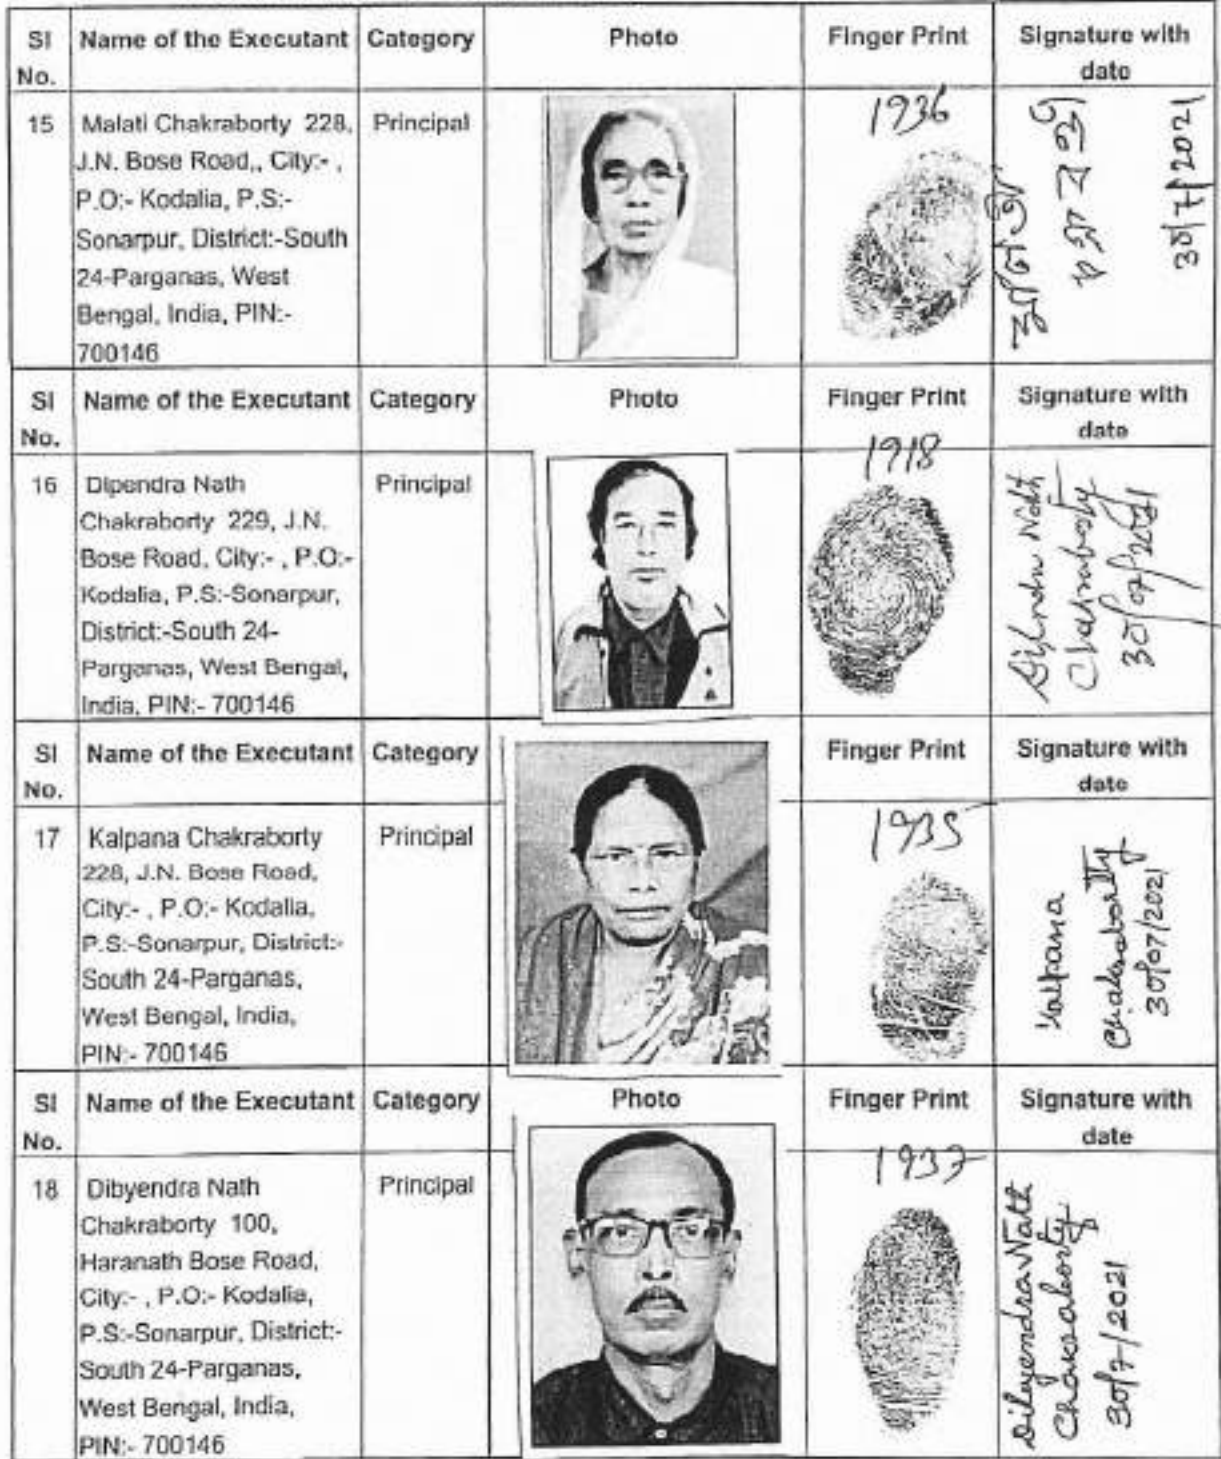 Sl No. Name of the Executant Category Photo Finger Print Signature with date
15 Malati Chakraborty 228, Principal 1936
J.N. Bose Road,, City:- ,
P.O:- Kodalia, P.S:-
Sonarpur, District:-South
24-Parganas, West
Bengal, India, PIN:-
700146
মালতী
চক্রবর্ত্তী
30/7/2021
Sl No. Name of the Executant Category Photo Finger Print Signature with date
16 Dipendra Nath Principal 1918
Chakraborty 229, J.N.
Bose Road, City:- , P.O:-
Kodalia, P.S:-Sonarpur,
District:-South 24-
Parganas, West Bengal,
India, PIN:- 700146
Nath
Chakraborty
30/07/2021
Sl No. Name of the Executant Category Finger Print Signature with date
17 Kalpana Chakraborty Principal 1935
228, J.N. Bose Road,
City:- , P.O:- Kodalia,
P.S:-Sonarpur, District:-
South 24-Parganas,
West Bengal, India,
PIN:- 700146
Kalpana
Chakraborty
30/07/2021
Sl No. Name of the Executant Category Photo Finger Print Signature with date
18 Dibyendra Nath Principal 1937
Chakraborty 100,
Haranath Bose Road,
City:- , P.O:- Kodalia,
P.S:-Sonarpur, District:-
South 24-Parganas,
West Bengal, India,
PIN:- 700146
Dibyendra Nath
Chakraborty
30/7/2021